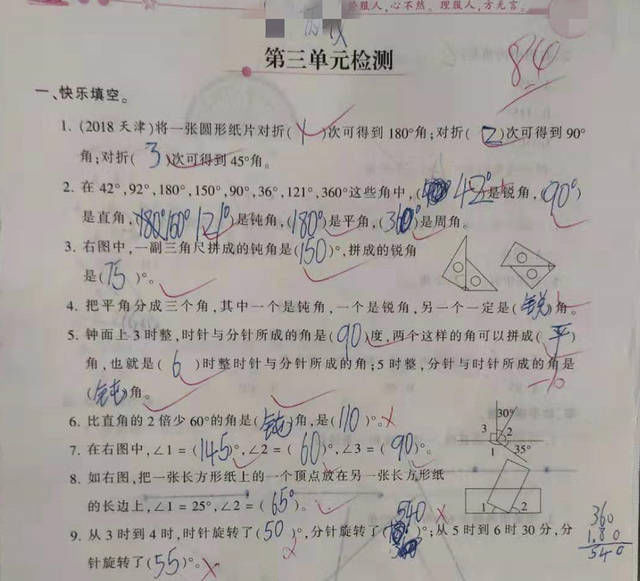 验服人,心不然、理服人,方无言。
第三单元检测
84
一、快乐填空。
1. (2018 天津)将一张圆形纸片对折( 1 )次可得到 180°角;对折( 2 )次可得到 90°
角;对折( 3 )次可得到 45°角。
2. 在 42°,92°,180°,150°,90°,36°,121°,360°这些角中,( 42° )是锐角,( 90° )
是直角,( 121° )是钝角,( 180° )是平角,( 360° )是周角。
3. 右图中,一副三角尺拼成的钝角是( 150 )°,拼成的锐角
是( 75 )°。
4. 把平角分成三个角,其中一个是钝角,一个是锐角,另一个一定是( 锐 )角。
5. 钟面上 3 时整,时针与分针所成的角是( 90 )度,两个这样的角可以拼成( 平 )
角,也就是( 6 )时整时针与分针所成的角;5 时整,分针与时针所成的角是
( 钝 )角。
6. 比直角的 2 倍少 60°的角是( 钝 )角,是( 110 )°。
7. 在右图中,∠1 = ( 145 )°,∠2 = ( 60 )°,∠3 = ( 90 )°。
30°
3 2
1 35°
8. 如右图,把一张长方形纸上的一个顶点放在另一张长方形纸
的长边上,∠1 = 25°,∠2 = ( 65° )。
1 2
9. 从 3 时到 4 时,时针旋转了( 50 )°,分针旋转了( 540 )°;从 5 时到 6 时 30 分,分
针旋转了( 55 )°。
360
180
540